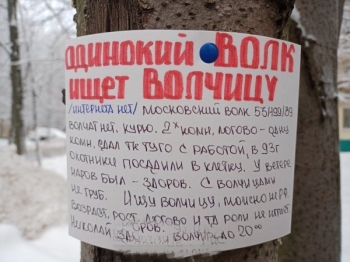 ОДИНОКИЙ ВОЛК
ИЩЕТ ВОЛЧИЦУ
/ИНТЕРНЕТА НЕТ/ МОСКОВСКИЙ ВОЛК 55/499/89
ВОЛЧАТ НЕТ. КУРЮ. 2Х КОМН. ЛОГОВО - ОДНУ
КОМН. СДАЛ ТК ТУГО С РАБОТОЙ, В 93Г
ОХОТНИКИ ПОСАДИЛИ В КЛЕТКУ. У ВЕТЕРЕ
НАРОВ БЫЛ - ЗДОРОВ. С ВОЛЧИЦАМИ
НЕ ГРУБ. ИЩУ ВОЛЧИЦУ, МОЖНО НЕ РФ.
ВОЗРАСТ, РОСТ, ЛОГОВО И ТД РОЛИ НЕ
НИКОЛАЙ ДО 20⁰⁰